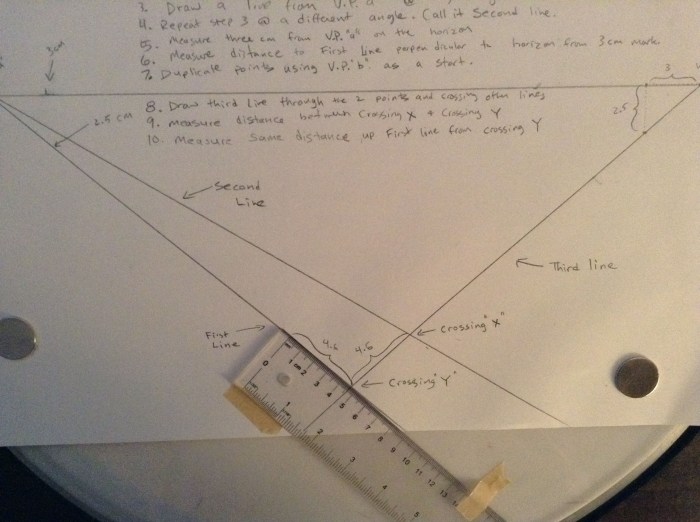 3. Draw a line from V.P. "a" @
4. Repeat step 3 @ a different angle. Call it Second line.
5. Measure three cm from V.P. "a" on the horizon
6. Measure distance to First Line perpendicular to horizon from 3cm mark
7. Duplicate points using V.P. "b" as a start.
3cm
3
8. Draw third line through the 2 points and crossing other lines
2.5 cm
2.5
9. Measure distance between Crossing X & Crossing Y
10. Measure same distance up First line from crossing Y
Second
Line
Third line
First
Line
4.6
4.6
Crossing "X"
Crossing "Y"
cm 1 2 3 4 5 6 7 8 9 10 11 12 13
1 2 3 4 5